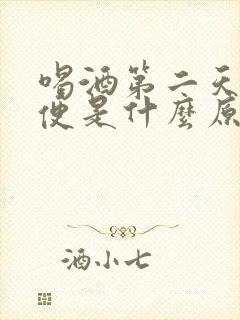 喝酒第二天
便是什麼原
酒小七